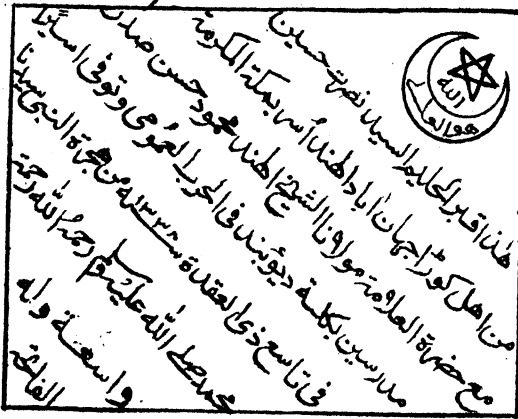 الله
هو
هذا قبر الحكيم السيد نصرت حسين
من اهل كوڑا جهان اباد الهند اُسر بمكة المكرمة
مع حضرة العلامة مولانا الشيخ الهند محمود حسن صدر
مدرسين بكلية ديوبند فى الحرب العمومى وتوفى اسيرا
فى تاسع ذى القعدة سنه ١٣٣٨ من هجرة النبى سيدنا
محمد صلى الله عليه وسلم رحمه الله رحمة
واسعة وله
الفاتحة